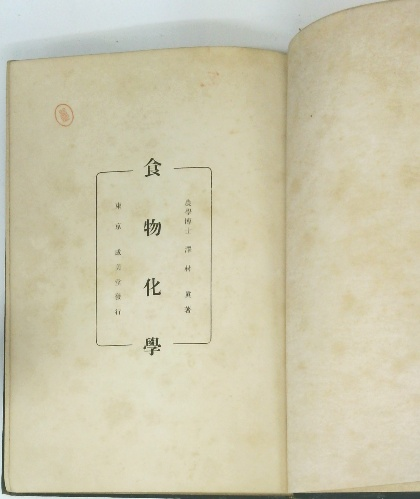 農學博士 澤村眞著
食物化學
東京 成美堂發行